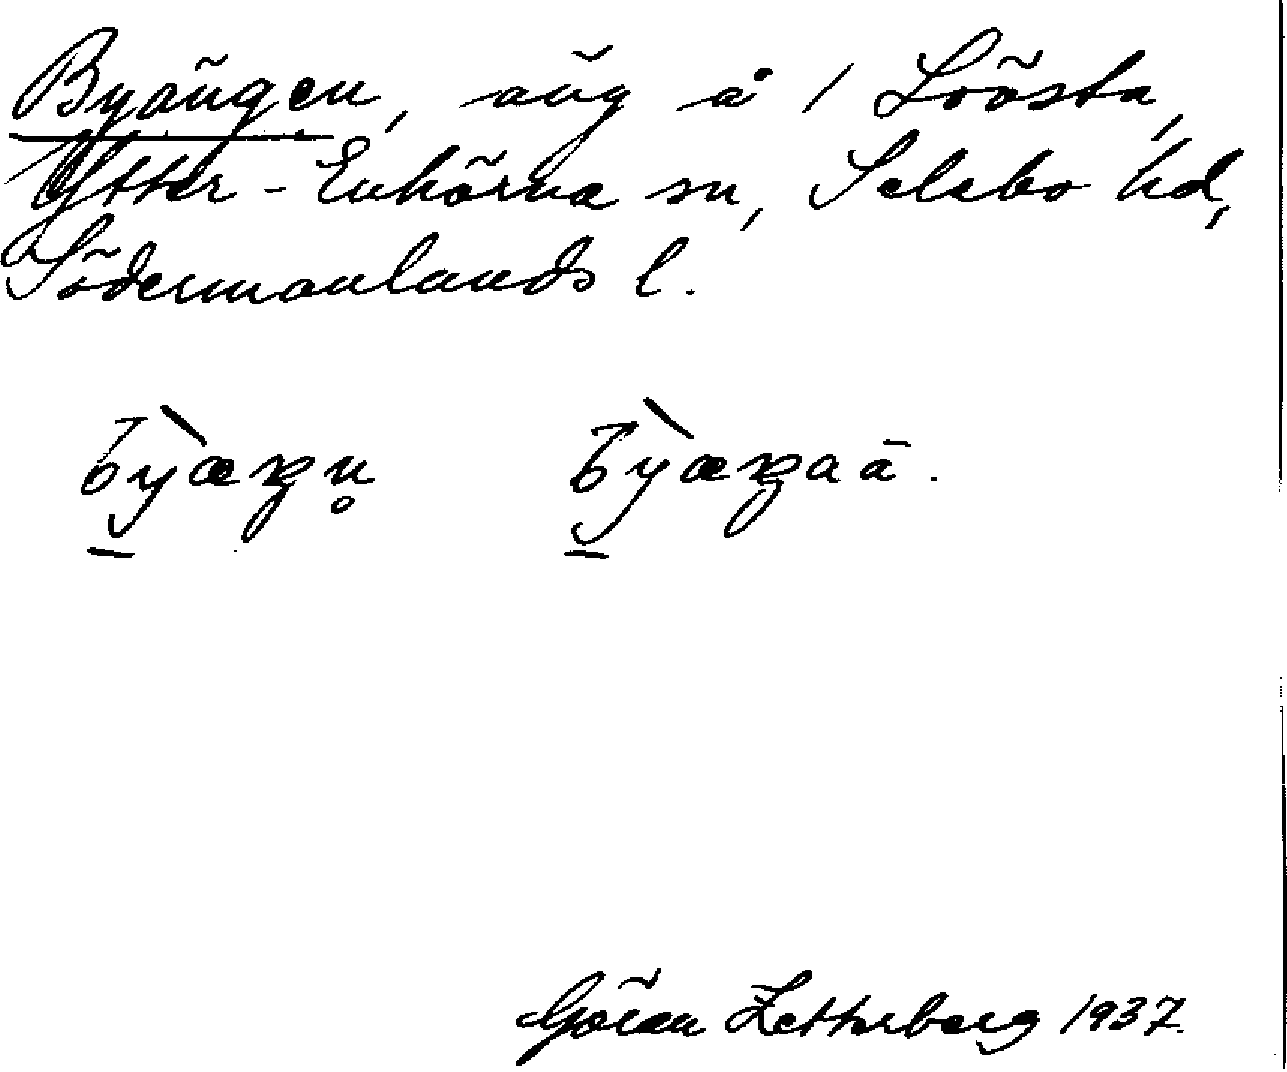 Byängen, äng å 1 Lövsta,
Ytter-Enhörna sn, Selebo hd,
Södermanlands l.
Göran Zetterberg 1937.